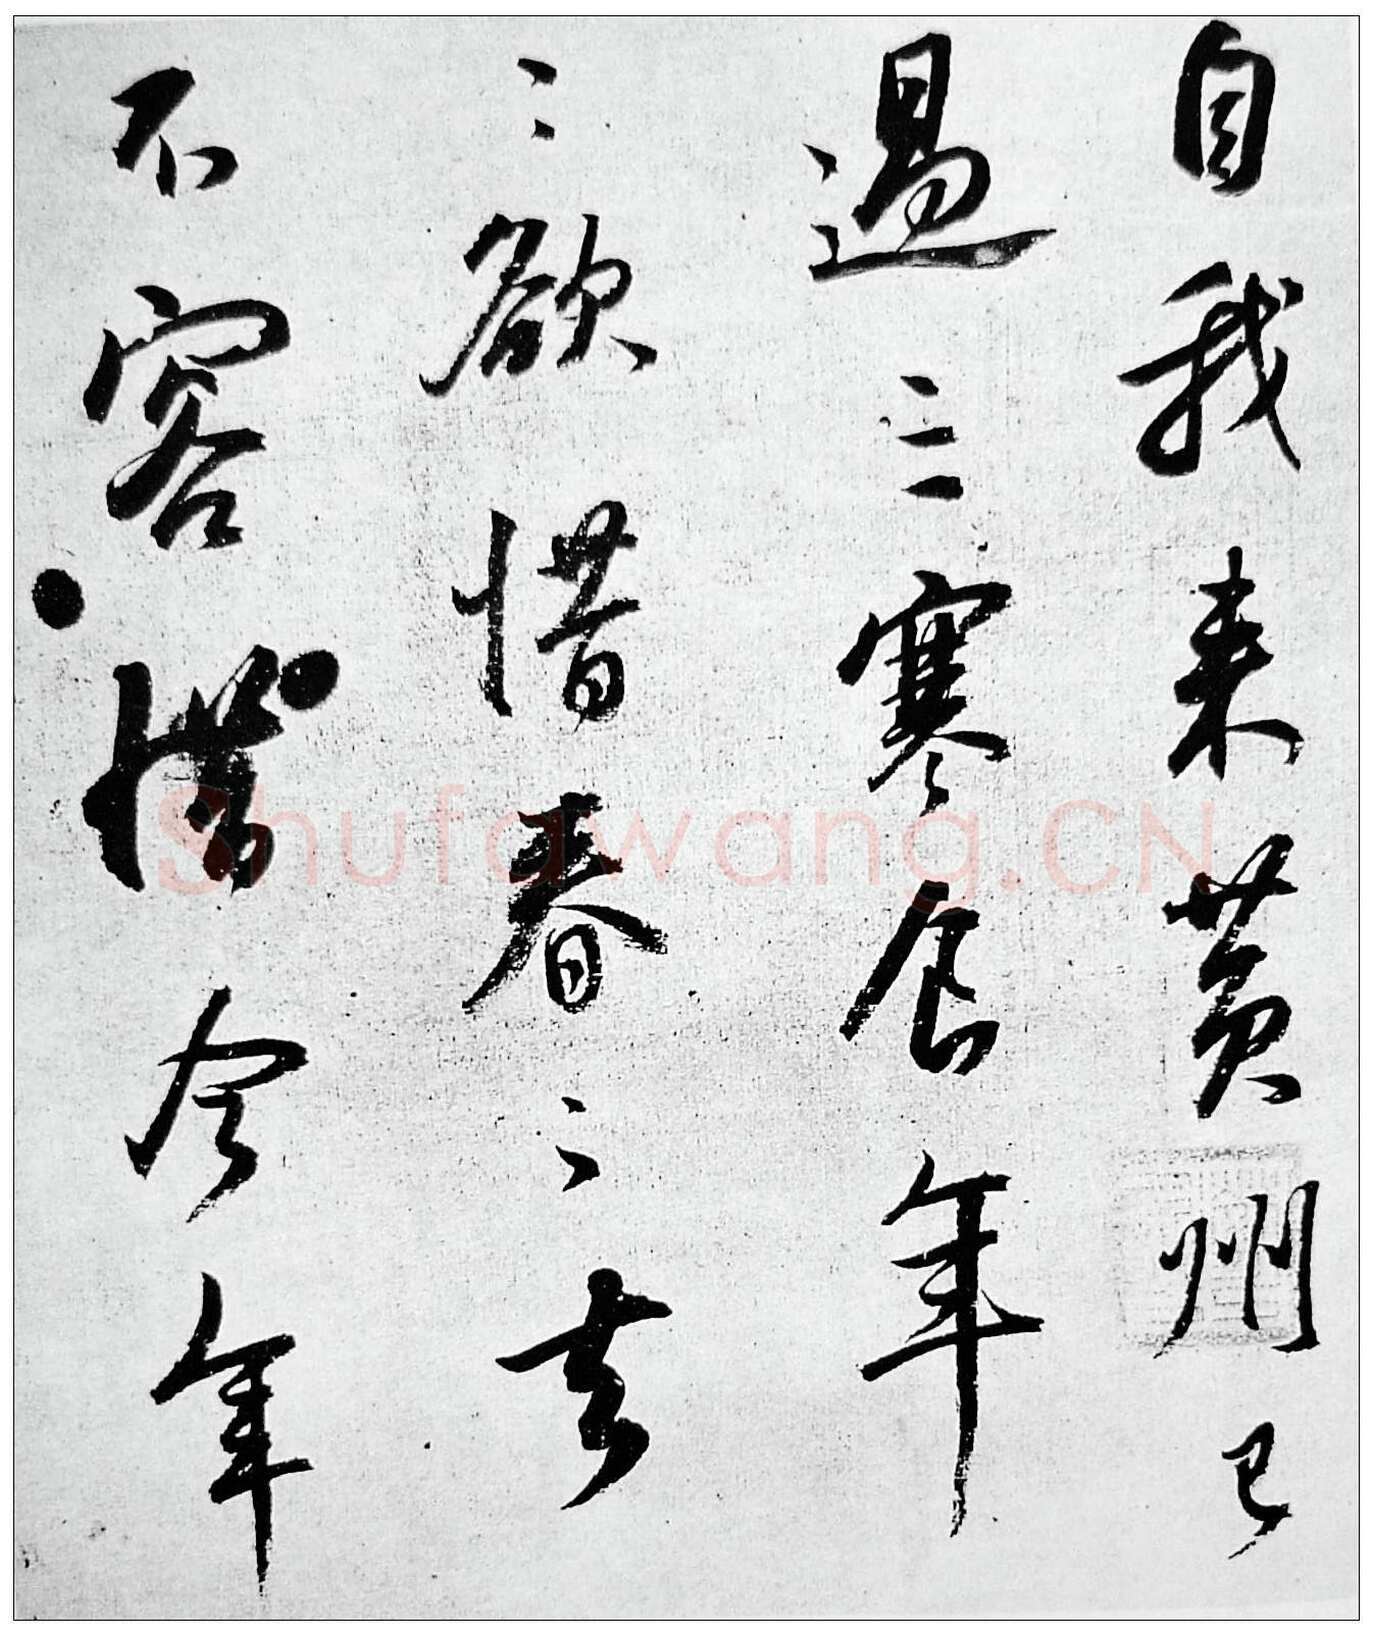 自我来黄州已
過三寒食年
〻欲惜春〻去
不容惜今年
Shufawang.CN